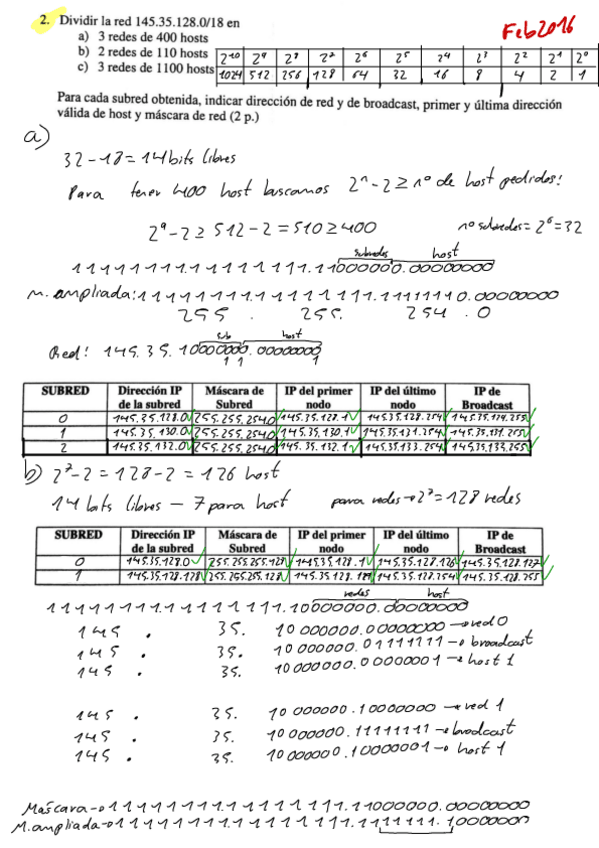 2. Dividir la red 145.35.128.0/18 en
Feb2016
a) 3 redes de 400 hosts
b) 2 redes de 110 hosts
c) 3 redes de 1100 hosts
2^10 2^9 2^8 2^7 2^6 2^5 2^4 2^3 2^2 2^1 2^0
1024 512 256 128 64 32 16 8 4 2 1
Para cada subred obtenida, indicar dirección de red y de broadcast, primer y última dirección
válida de host y máscara de red (2 p.)
a)
32-18=14 bits libres
Para tener 400 host buscamos 2^n-2≥nº de host pedidos!
2^9-2≥512-2=510≥400 nº subredes=2^6=32
subredes host
11111111.11111111.11000000.00000000
m. ampliada:11111111.11111111.11111110.00000000
255 . 255. 254 .0
sub host
Red: 145.35.10000000.00000000
1 1 1
SUBRED Dirección IP de la subred Máscara de Subred IP del primer nodo IP del último nodo IP de Broadcast
0 145.35.128.0 255.255.254.0 145.35.128.1 145.35.128.254 145.35.129.255
1 145.35.130.0 255.255.254.0 145.35.130.1 145.35.131.254 145.35.131.255
2 145.35.132.0 255.255.254.0 145.35.132.1 145.35.133.254 145.35.133.255
b) 2^7-2=128-2=126 host
14 bits libres - 7 para host para redes→2^7=128 redes
SUBRED Dirección IP de la subred Máscara de Subred IP del primer nodo IP del último nodo IP de Broadcast
0 145.35.128.0 255.255.255.128 145.35.128.1 145.35.128.126 145.35.128.127
1 145.35.128.128 255.255.255.128 145.35.128.129 145.35.128.254 145.35.128.255
redes host
11111111.11111111.10000000.00000000
145 . 35. 10000000.00000000→red 0
145 . 35. 10000000.01111111→broadcast
145 . 35. 10000000.00000001→host 1
145 . 35. 10000000.10000000→red 1
145 . 35. 10000000.11111111→broadcast
145 . 35. 10000000.10000001→host 1
Máscara→11111111.11111111.11000000.00000000
M. ampliada→11111111.11111111.11111111.10000000